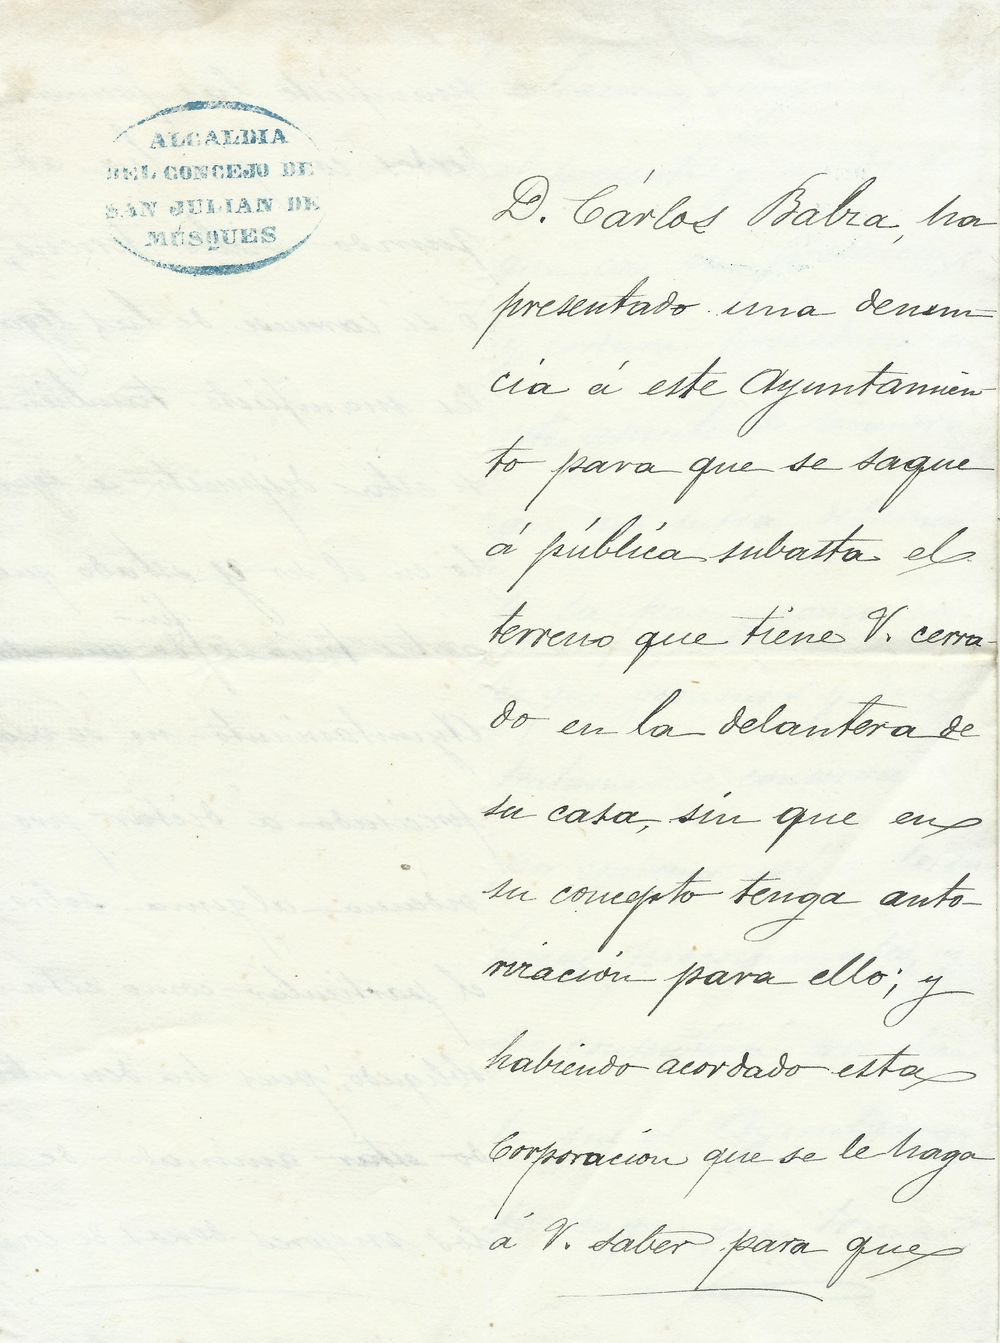 ALCALDIA
DEL CONCEJO DE
SAN JULIAN DE
MÚSQUES
D. Cárlos Balza, ha
presentado una denun-
cia á este Ayuntamien-
to para que se saque
á pública subasta el
terreno que tiene V. cerra-
do en la delantera de
su casa, sin que en
su concepto tenga auto-
rización para ello; y
habiendo acordado esta
Corporación que se le haga
á V. saber para que